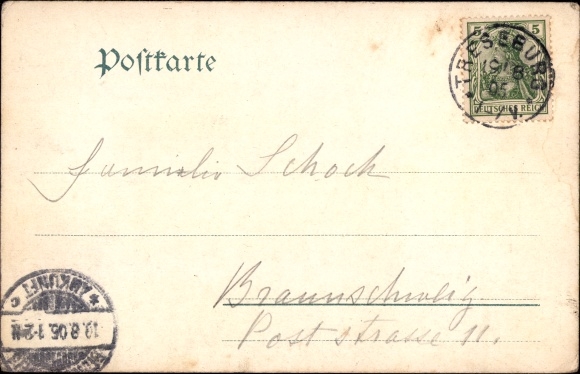 Postkarte
5 5
TRESEBURG
19/8
05
7V.
DEUTSCHES REICH
Familie Schoch
Braunschweig
Poststrasse 11.
* ANKUNFT c
19.8.05.1-2N